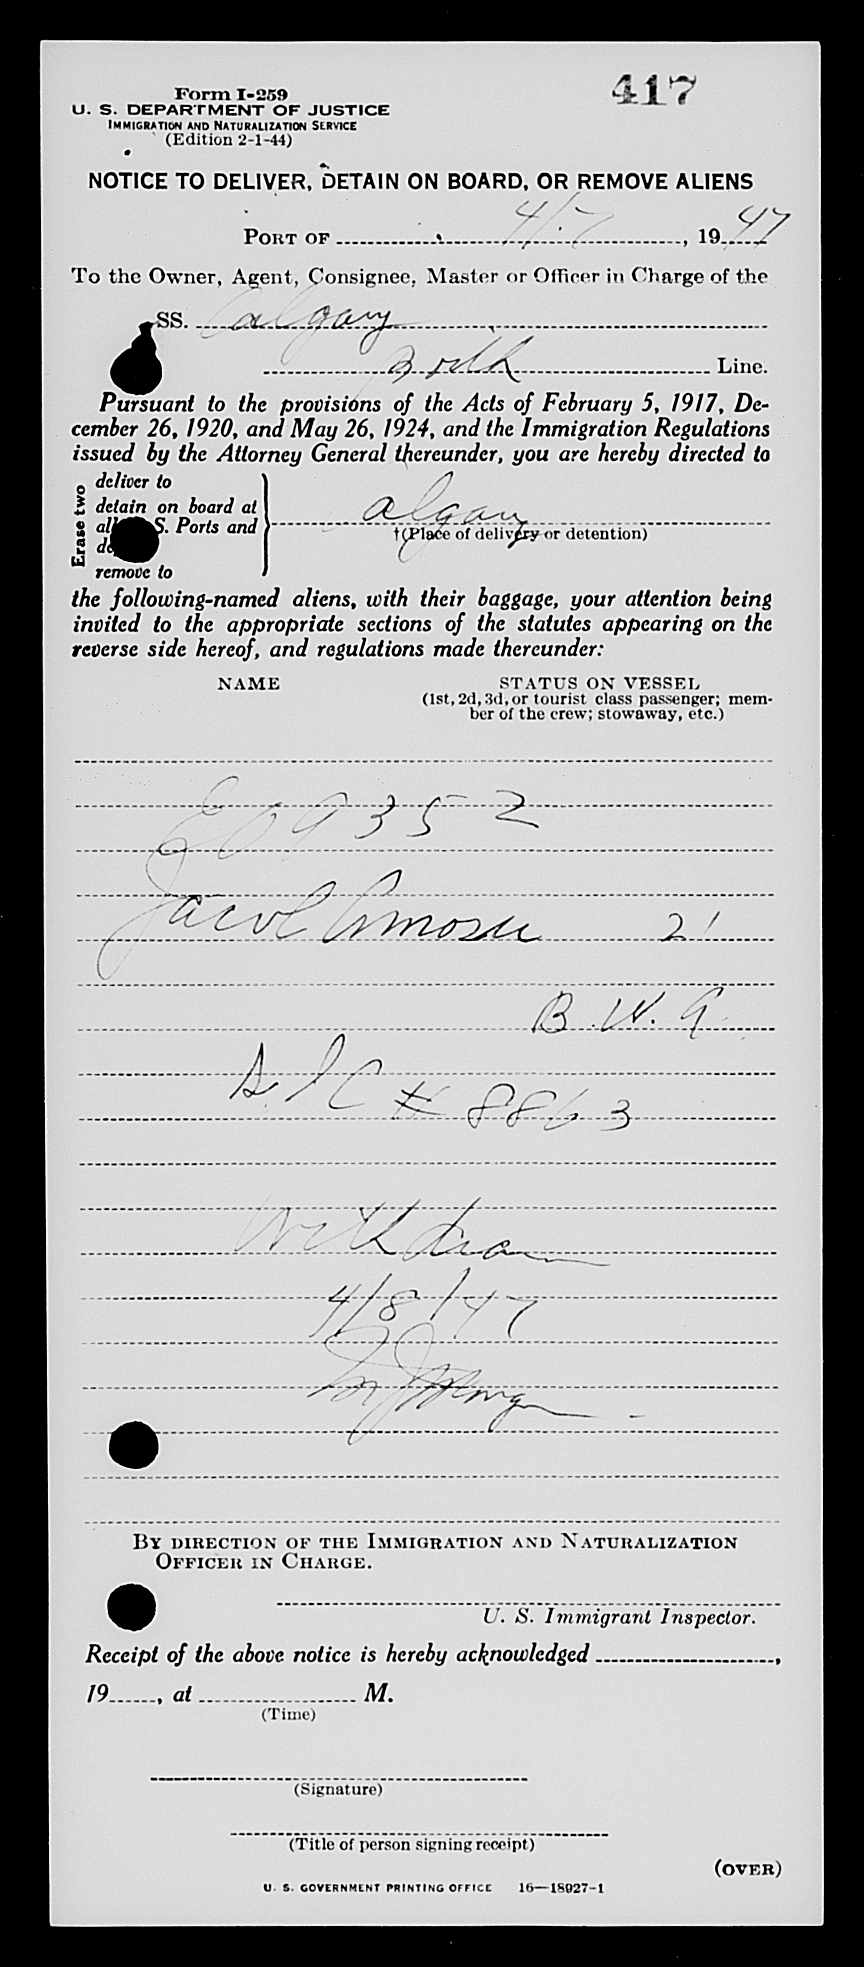 417
Form I-259
U. S. DEPARTMENT OF JUSTICE
IMMIGRATION AND NATURALIZATION SERVICE
(Edition 2-1-44)
NOTICE TO DELIVER, DETAIN ON BOARD, OR REMOVE ALIENS
PORT OF 4/7, 1947
To the Owner, Agent, Consignee, Master or Officer in Charge of the
SS. Calgary
Line.
Pursuant to the provisions of the Acts of February 5, 1917, De-
cember 26, 1920, and May 26, 1924, and the Immigration Regulations
issued by the Attorney General thereunder, you are hereby directed to
Erase two
deliver to
detain on board at
all S. Ports and
remove to
Calgary
†(Place of delivery or detention)
the following-named aliens, with their baggage, your attention being
invited to the appropriate sections of the statutes appearing on the
reverse side hereof, and regulations made thereunder:
NAME
STATUS ON VESSEL
(1st, 2d, 3d, or tourist class passenger; mem-
ber of the crew; stowaway, etc.)
E09352
Jacob 21
B.W.A.
#8863
Withdrawn
4/8/47
BY DIRECTION OF THE IMMIGRATION AND NATURALIZATION
OFFICER IN CHARGE.
U. S. Immigrant Inspector.
Receipt of the above notice is hereby acknowledged ,
19 , at M.
(Time)
(Signature)
(Title of person signing receipt)
(OVER)
U. S. GOVERNMENT PRINTING OFFICE 16—18927-1